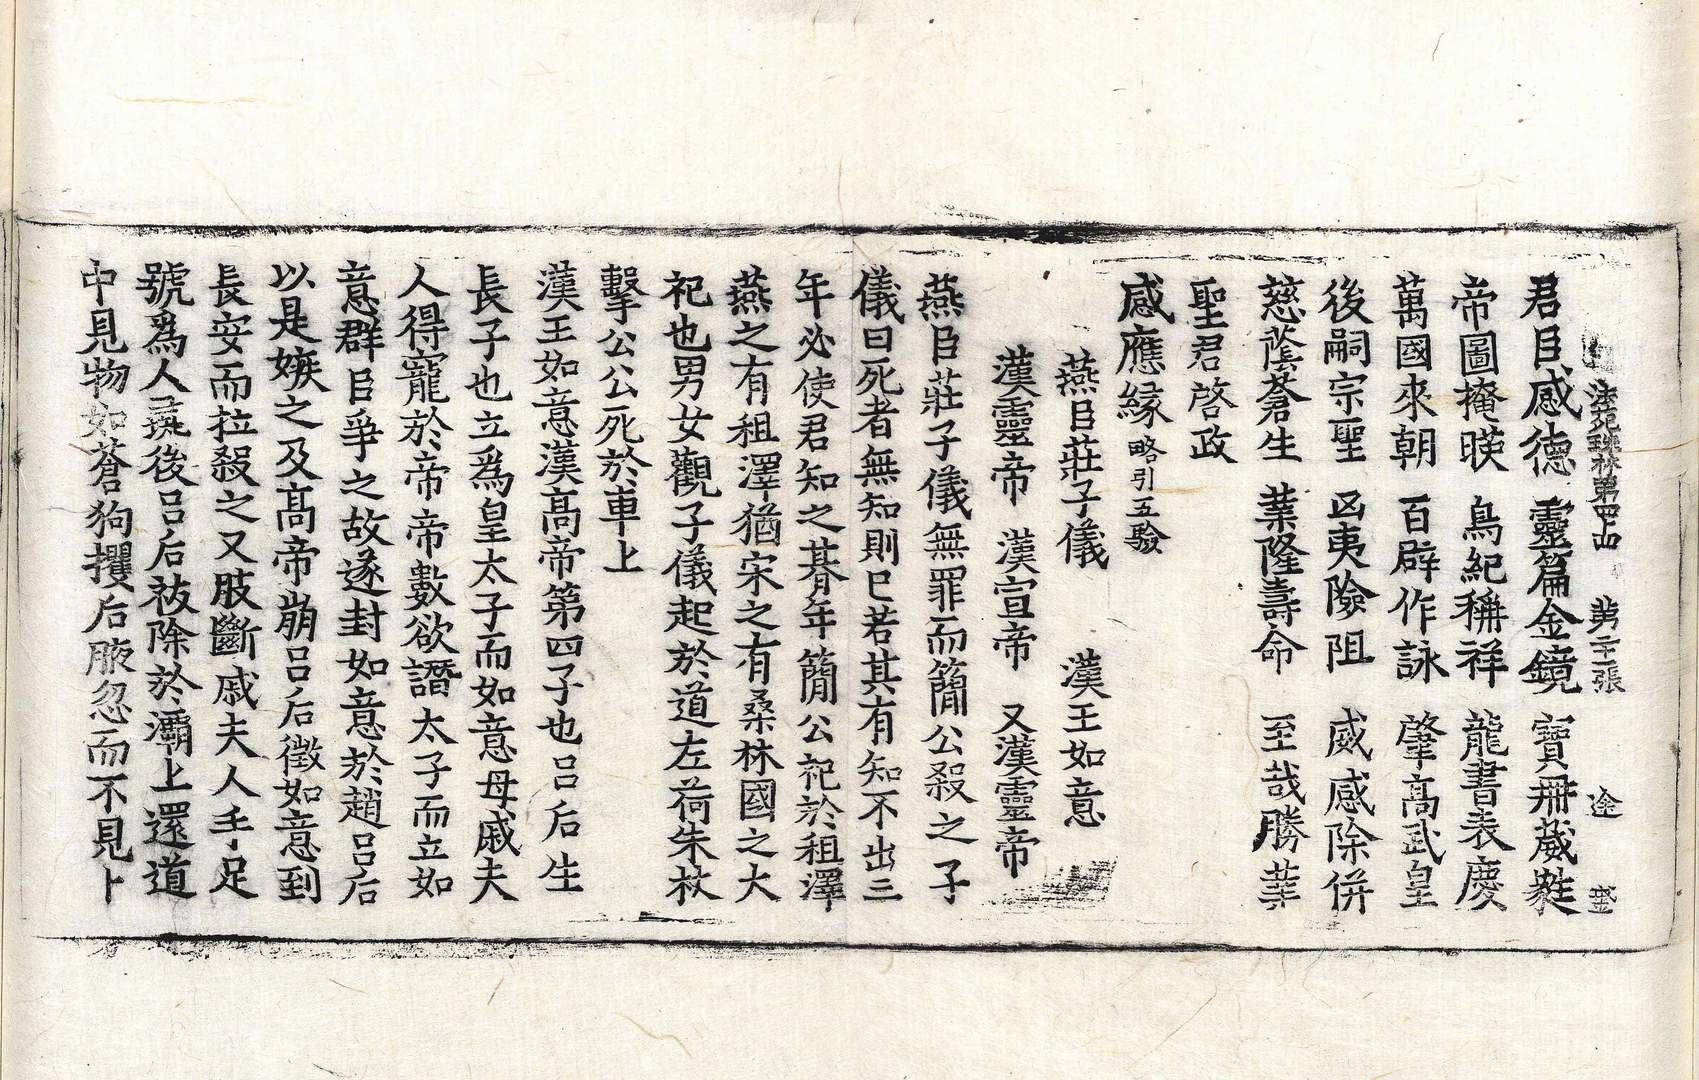 法苑珠林第四十四 第二十一張 途
君臣感德 靈篇金鏡 寶冊葳蕤
帝圖掩暎 鳥紀稱祥 龍書表慶
萬國來朝 百辟作詠 肇高武皇
後嗣宗聖 凶夷險阻 威感除併
慈蔭蒼生 業隆壽命 至哉勝業
聖君啓政
感應緣略引五驗
燕臣莊子儀 漢王如意
漢靈帝 漢宣帝 又漢靈帝
燕臣莊子儀無罪而簡公殺之子
儀曰死者無知則已若其有知不出三
年必使君知之朞年簡公祀於祖澤
燕之有祖澤猶宋之有桑林國之大
祀也男女觀子儀起於道左荷朱杖
擊公公死於車上
漢王如意漢高帝第四子也呂后生
長子也立爲皇太子而如意母戚夫
人得寵於帝帝數欲譖太子而立如
意群臣爭之故遂封如意於趙呂后
以是嫉之及高帝崩呂后徵如意到
長安而拉殺之又肢斷戚夫人手足
號爲人彘後呂后祓除於灞上還道
中見物如蒼狗攫后腋忽而不見卜